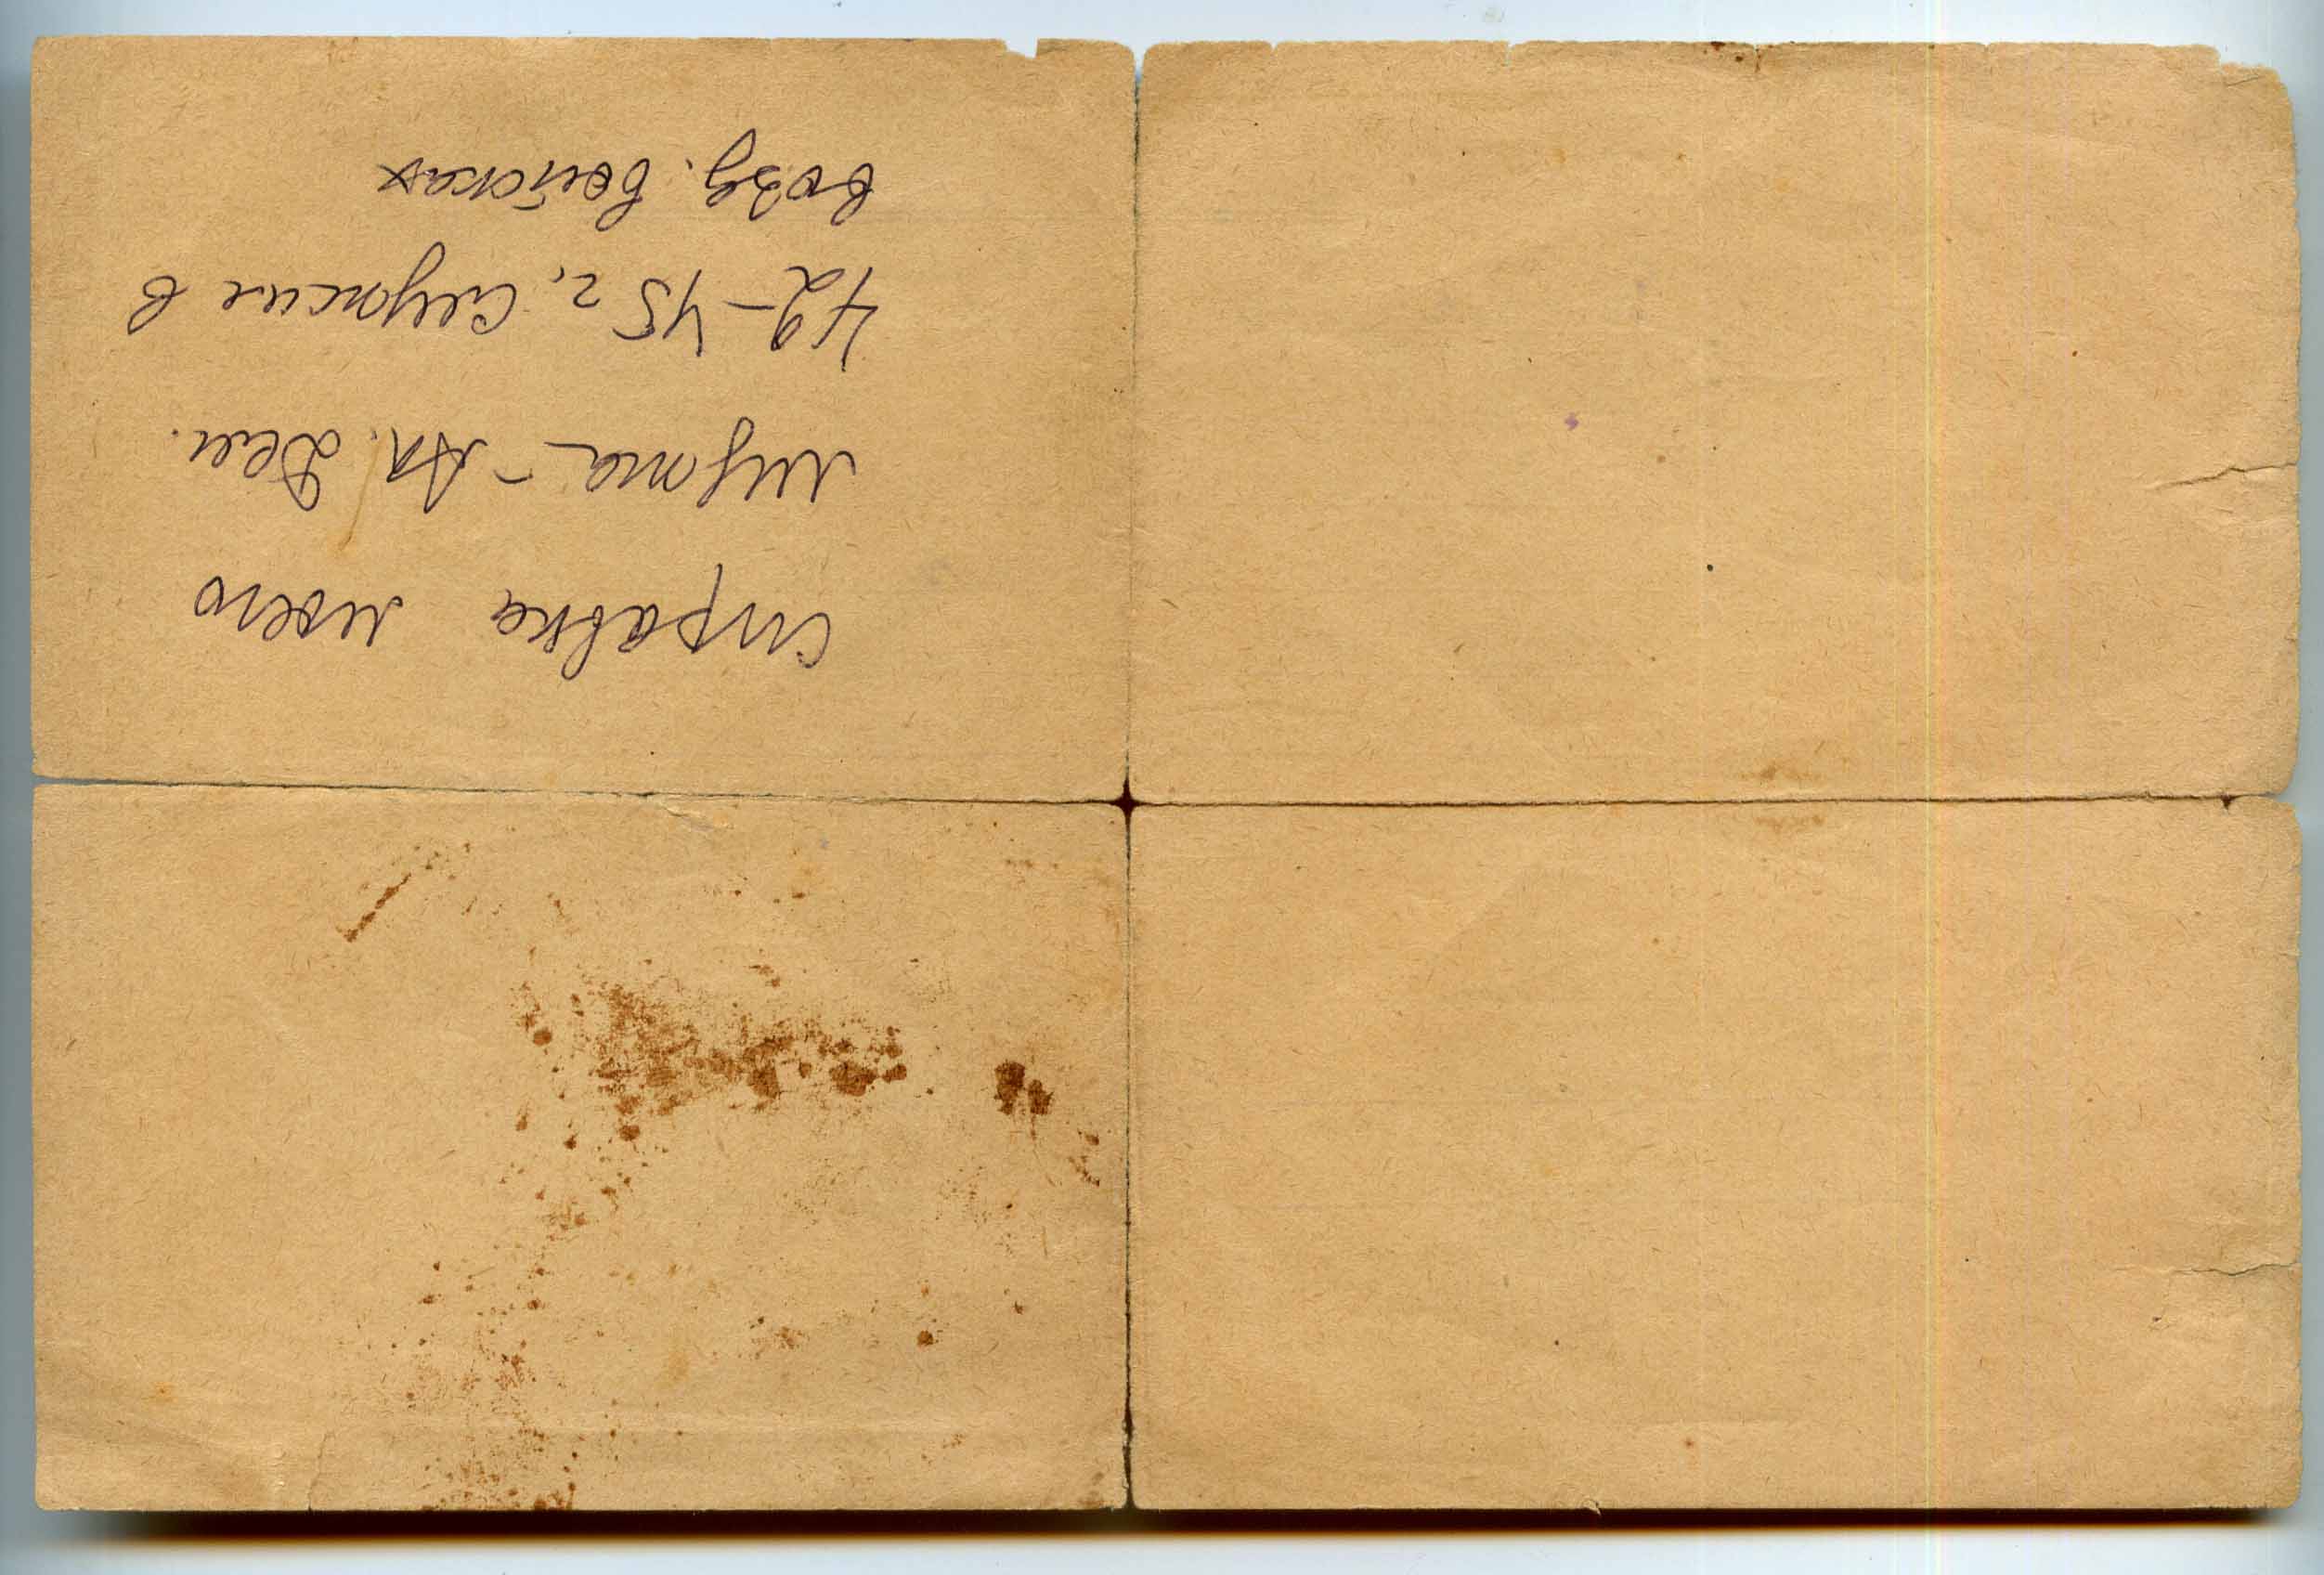 справка моего
мужа - Ал. Дем.
42-45 г. служение в
возд. войсках